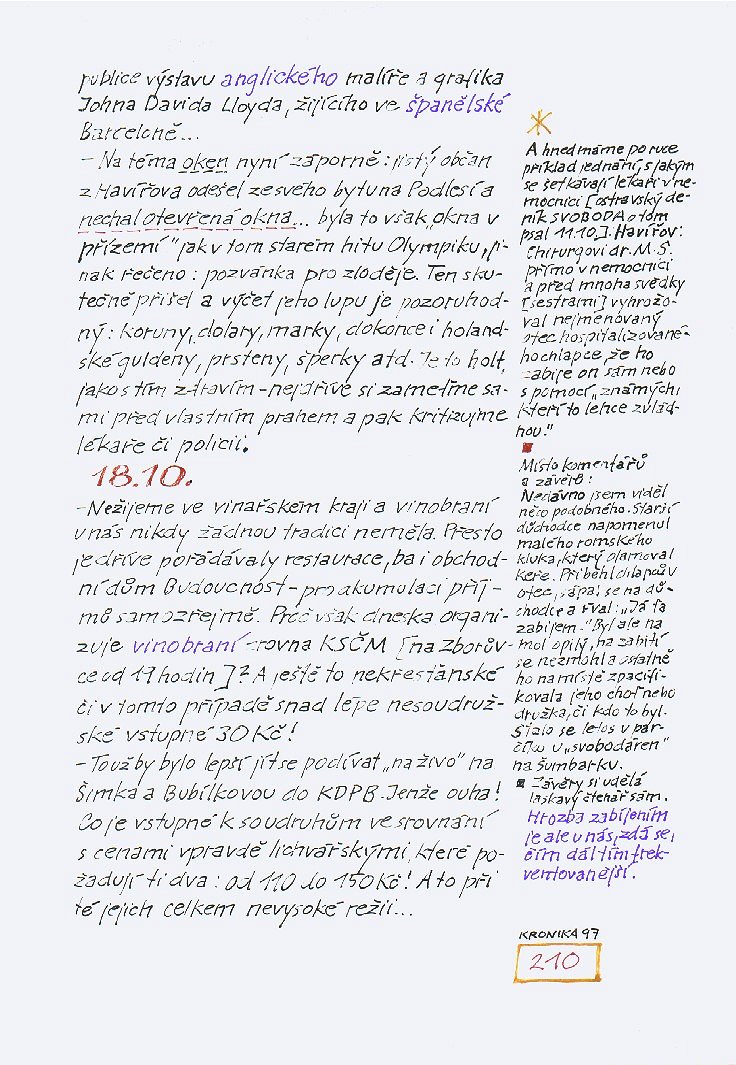 publice výstavu anglického malíře a grafika
Johna Davida Lloyda, žijícího ve španělské
Barceloně...
- Na téma oken nyní záporně: jistý občan
z Havířova odešel ze svého bytu na Podlesí a
nechal otevřená okna... byla to však „okna v
přízemí" jak v tom starém hitu Olympiku, ji-
nak řečeno: pozvánka pro zloděje. Ten sku-
tečně přišel a výčet jeho lupu je pozoruhod-
ný: koruny, dolary, marky, dokonce i holand-
ské guldeny, prsteny, šperky atd. Je to holt,
jako s tím zdravím - nejdříve si zameťme sa-
mi před vlastním prahem a pak kritizujme
lékaře či policii.
18.10.
- Nežijeme ve vinařském kraji a vinobraní
u nás nikdy žádnou tradici neměla. Přesto
je dříve pořádávaly restaurace, ba i obchod-
ní dům Budoucnost - pro akumulaci příj-
mů samozřejmě. Proč však dneska organi-
zuje vinobraní zrovna KSČM [na Zborův-
ce od 17 hodin]? A ještě to nekřesťánské
či v tomto případě snad lépe nesoudruž-
ské vstupné 30 Kč!
- Tou by bylo lepší jít se podívat „na živo" na
Šimka a Bubílkovou do KDPB. Jenže ouha!
Co je vstupné k soudruhům ve srovnání
s cenami vpravdě lichvářskými, které po-
žadují ti dva: od 110 do 150 Kč! A to při
té jejich celkem nevysoké režii...
A hned máme po ruce
příklad jednání, s jakým
se setkávají lékaři v ne-
mocnici [ostravský de-
ník SVOBODA o tom
psal 11.10.]. Havířov:
Chirurgovi dr. M. S.
přímo v nemocnici
a před mnoha svědky
[sestrami] vyhrožo-
val nejmenovaný
otec hospitalizované-
ho chlapce, že ho
zabije on sám nebo
s pomocí „známých,
kteří to lehce zvlád-
nou."
Místo komentářů
a závěrů:
Nedávno jsem viděl
něco podobného. Starší
důchodce napomenul
malého romského
kluka, který olamoval
keře. Přiběhl chlapcův
otec, sápal se na dů-
chodce a řval: „Já ťa
zabijem." Byl ale na
mol opilý, na zabití
se nezmohl a ostatně
ho na místě zpacifi-
kovala jeho choť nebo
družka, či kdo to byl.
Stalo se letos v par-
číku u „svobodáren"
na Šumbarku.
Závěry si udělá
laskavý čtenář sám.
Hrozba zabíjením
je ale u nás, zdá se,
čím dál tím frek-
ventovanější.
KRONIKA 97
210